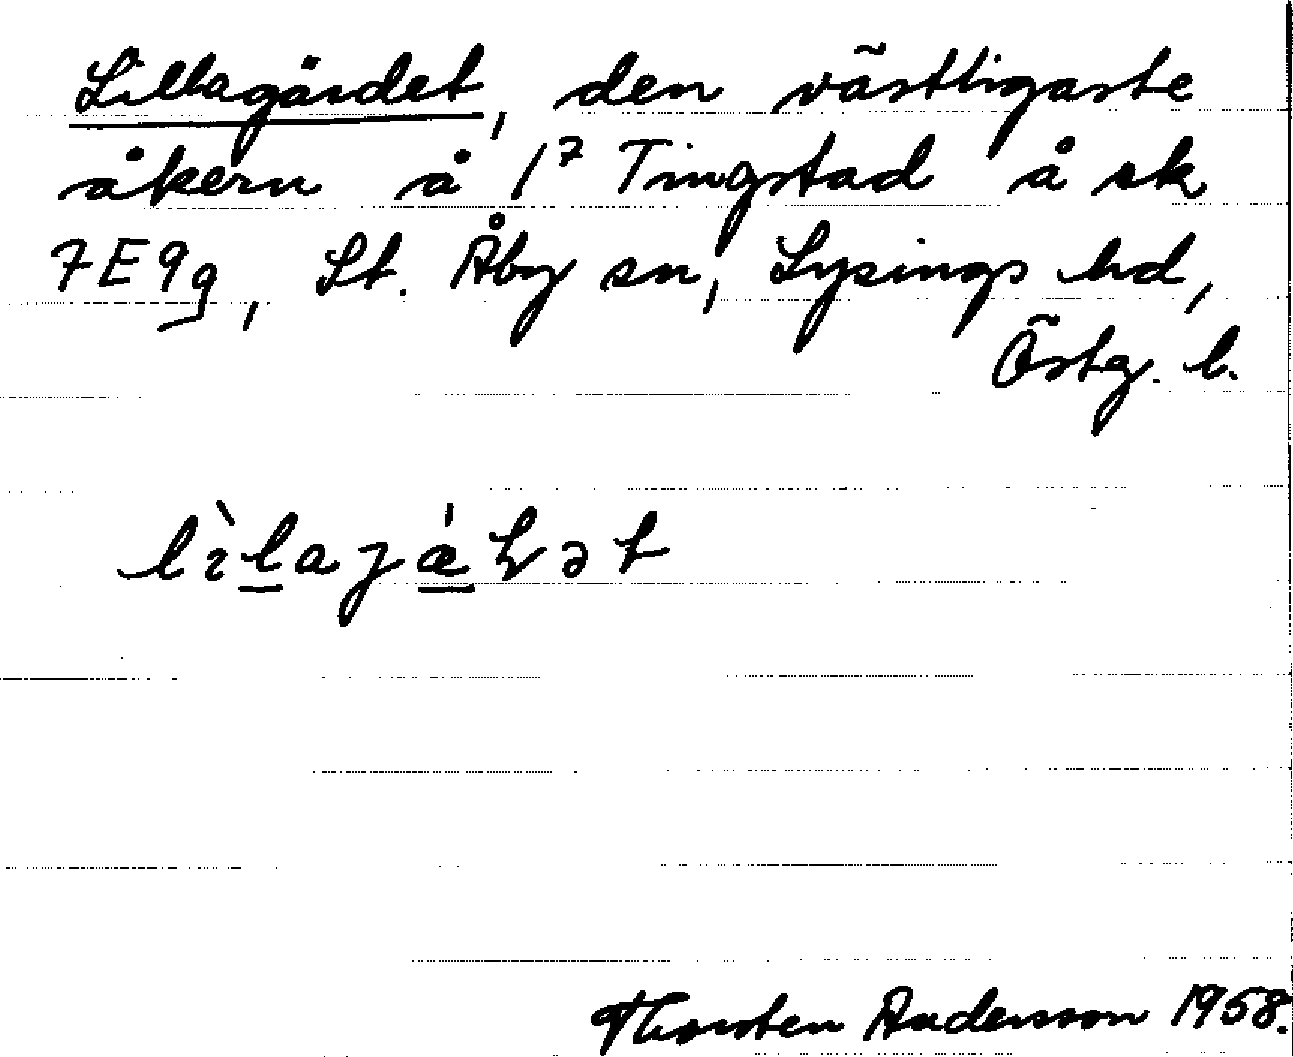 Lillagärdet, den västligaste
åkern å 1⁷ Tingstad å sk
7E9g, St. Åby sn, Lysings hd,
Östg. l.
Thorsten Andersson 1958.